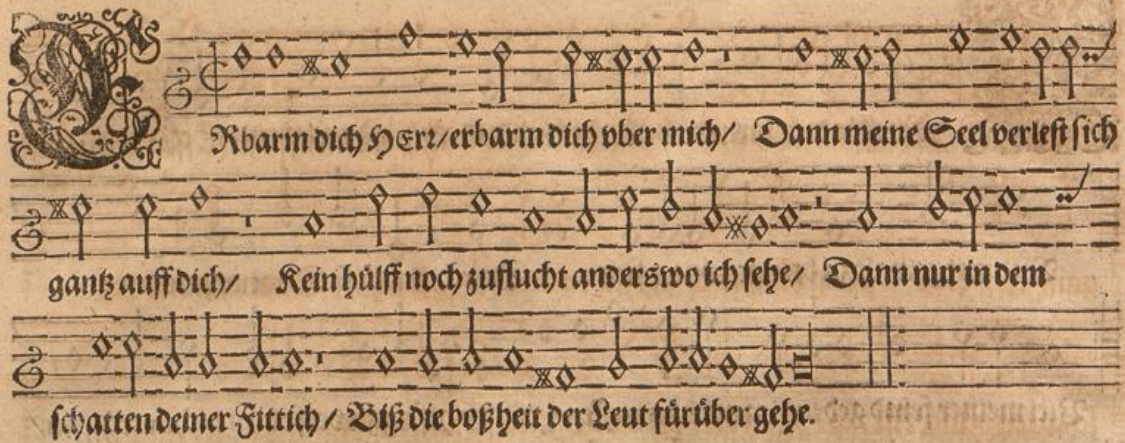 ERbarm dich HErr/erbarm dich vber mich/ Dann meine Seel verlest sich
gantz auff dich/ Kein hülff noch zuflucht anderswo ich sehe/ Dann nur in dem
schatten deiner Fittich/ Biß die boßheit der Leut für über gehe.